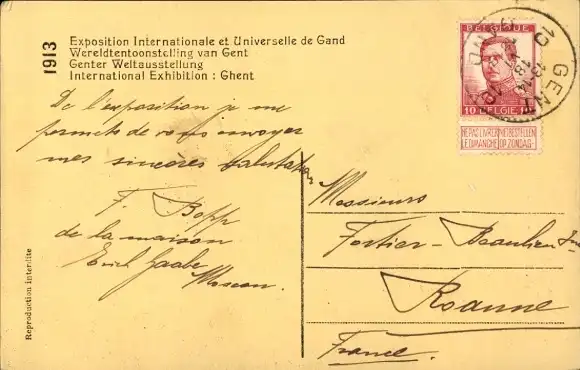 1913
Exposition Internationale et Universelle de Gand
Wereldtentoonstelling van Gent
Genter Weltausstellung
International Exhibition : Ghent
BELGIQUE
10 BELGIE 10
NE PAS LIVRER NIET BESTELLEN
LE DIMANCHE OP ZONDAG
GENT
GAND
13-14
De l'exposition je me
permets de vous envoyer
mes sincères salutations
F. Bopp
de la maison
Erich Gaabe
Moscou.
Messieurs
Fortier-Beaulieu
Roanne
France.
Reproduction interdite